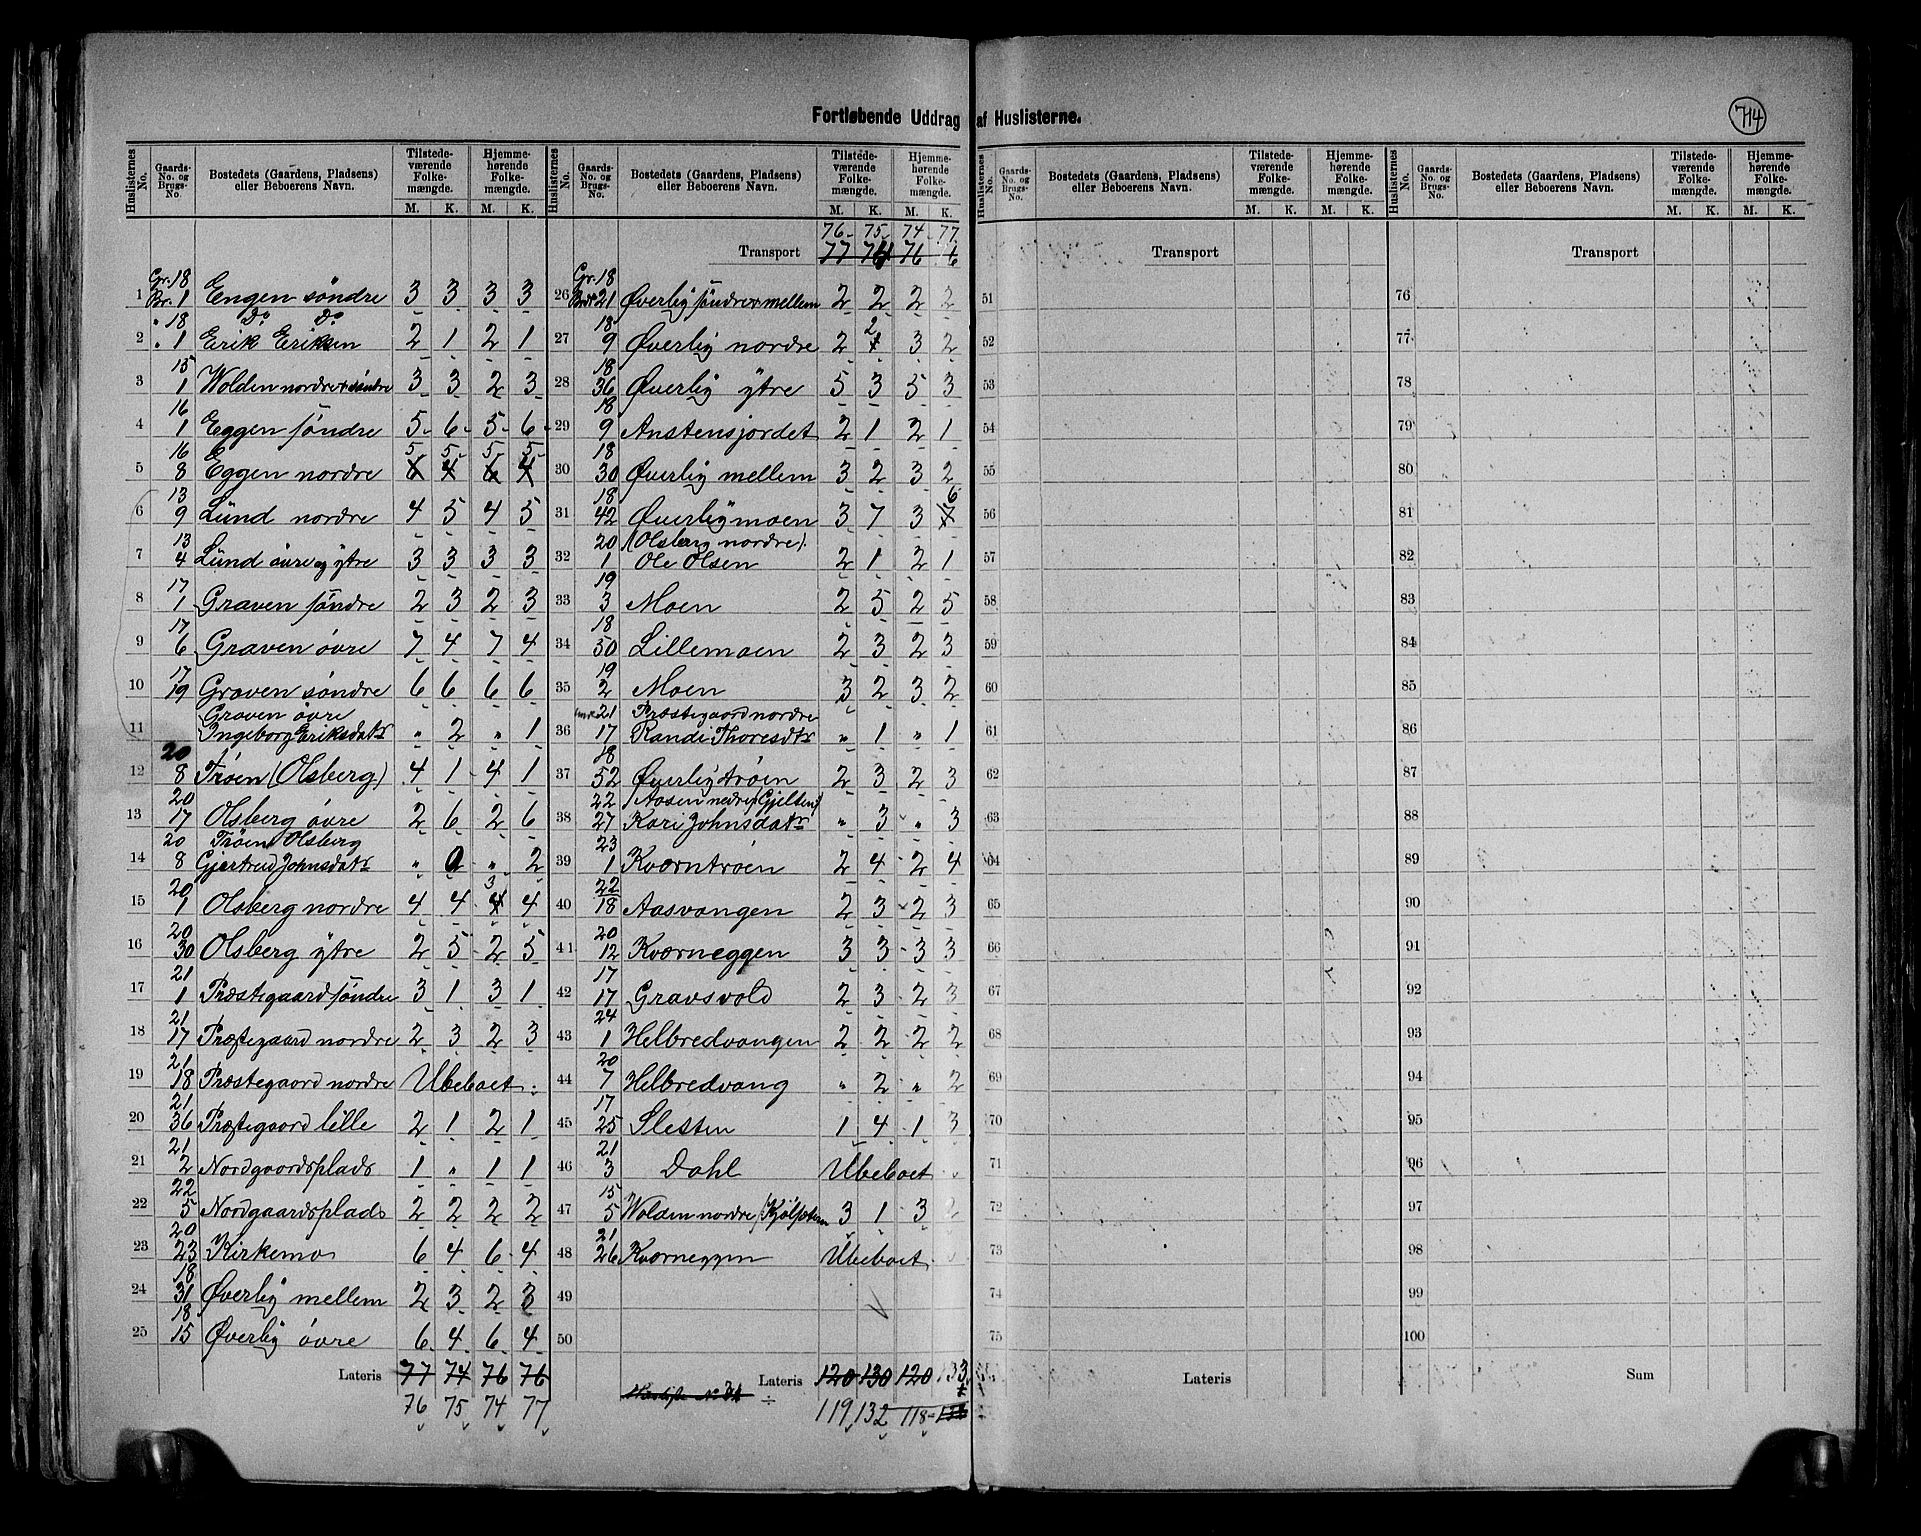 Fortløbende Uddrag af Huslisterne.
714
Huslisternes No. Gaards-No. og Brugs-No. Bostedets (Gaardens, Pladsens) eller Beboerens Navn. Tilstedeværende Folkemængde. M. K. Hjemmehørende Folkemængde. M. K.
1 Gr. 18 Br. 1 Engen søndre 3 3 3 3
2 " 18 " 1 Do Do Erik Eriksen 2 1 2 1
3 15 1 Wolden nordre & søndre 3 3 2 3
4 16 1 Eggen søndre 5 6 5 6
5 16 8 Eggen nordre 5 5 5 5
6 13 9 Lund nordre 4 5 4 5
7 13 4 Lund øvre og ytre 3 3 3 3
8 17 1 Graven søndre 2 3 2 3
9 17 6 Graven øvre 7 4 7 4
10 17 19 Graven søndre 6 6 6 6
11 Graven øvre Ingeborg Eriksdatr " 2 " 1
12 20 8 Trøen (Olsberg) 4 1 4 1
13 20 17 Olsberg øvre 2 6 2 6
14 20 8 Trøen Olsberg Gjertrud Johnsdatr " 0 " 2
15 20 1 Olsberg nordre 4 4 3 4
16 20 30 Olsberg ytre 2 5 2 5
17 21 1 Præstegaard søndre 3 1 3 1
18 21 17 Præstegaard nordre 2 3 2 3
19 21 18 Præstegaard nordre Ubeboet
20 21 36 Præstegaard lille 2 1 2 1
21 21 2 Nordgaardsplads 1 " 1 1
22 22 5 Nordgaardsplads 2 2 2 2
23 20 23 Kirkemo 6 4 6 4
24 18 31 Øverby mellem 2 3 2 3
25 18 15 Øverby øvre 6 4 6 4
Lateris 77 74 76 76
76 75 74 77
76 75 74 77
Transport 77 74 76 6
26 Gr. 18 Br. 21 Øverby søndre & mellem 2 2 2 2
27 18 9 Øverby nordre 2 2 3 2
28 18 36 Øverby ytre 5 3 5 3
29 18 9 Anstensjordet 2 1 2 1
30 18 30 Øverby mellem 3 2 3 2
31 18 42 Øverbymoen 3 7 3 6
32 20 1 (Olsberg nordre) Ole Olsen 2 1 2 1
33 19 3 Moen 2 5 2 5
34 18 50 Lillemoen 2 3 2 3
35 19 2 Moen 3 2 3 2
36 21 17 Præstegaard nordre Randi Thoresdtr " 1 " 1
37 18 52 Øverbytrøen 2 3 2 3
38 22 27 Aasen nedre (Gjelten) Kari Johnsdatr " 3 " 3
39 23 1 Kværntrøen 2 4 2 4
40 22 18 Aasvangen 2 3 2 3
41 20 12 Kværneggen 3 3 3 3
42 17 17 Gravsvold 2 3 2 3
43 24 1 Helbredvangen 2 2 2 2
44 20 7 Helbredvang " 2 " 2
45 17 25 Sletten 1 4 1 3
46 21 3 Dahl Ubeboet
47 15 5 Wolden nordre 3 1 3 2
48 21 26 Kværneggen Ubeboet
49
50
Lateris 120 130 120 133
÷ 119 132 118
Huslisternes No. Gaards-No. og Brugs-No. Bostedets (Gaardens, Pladsens) eller Beboerens Navn. Tilstedeværende Folkemængde. M. K. Hjemmehørende Folkemængde. M. K.
Transport
51
52
53
54
55
56
57
58
59
60
61
62
63
64
65
66
67
68
69
70
71
72
73
74
75
Lateris
Transport
76
77
78
79
80
81
82
83
84
85
86
87
88
89
90
91
92
93
94
95
96
97
98
99
100
Sum